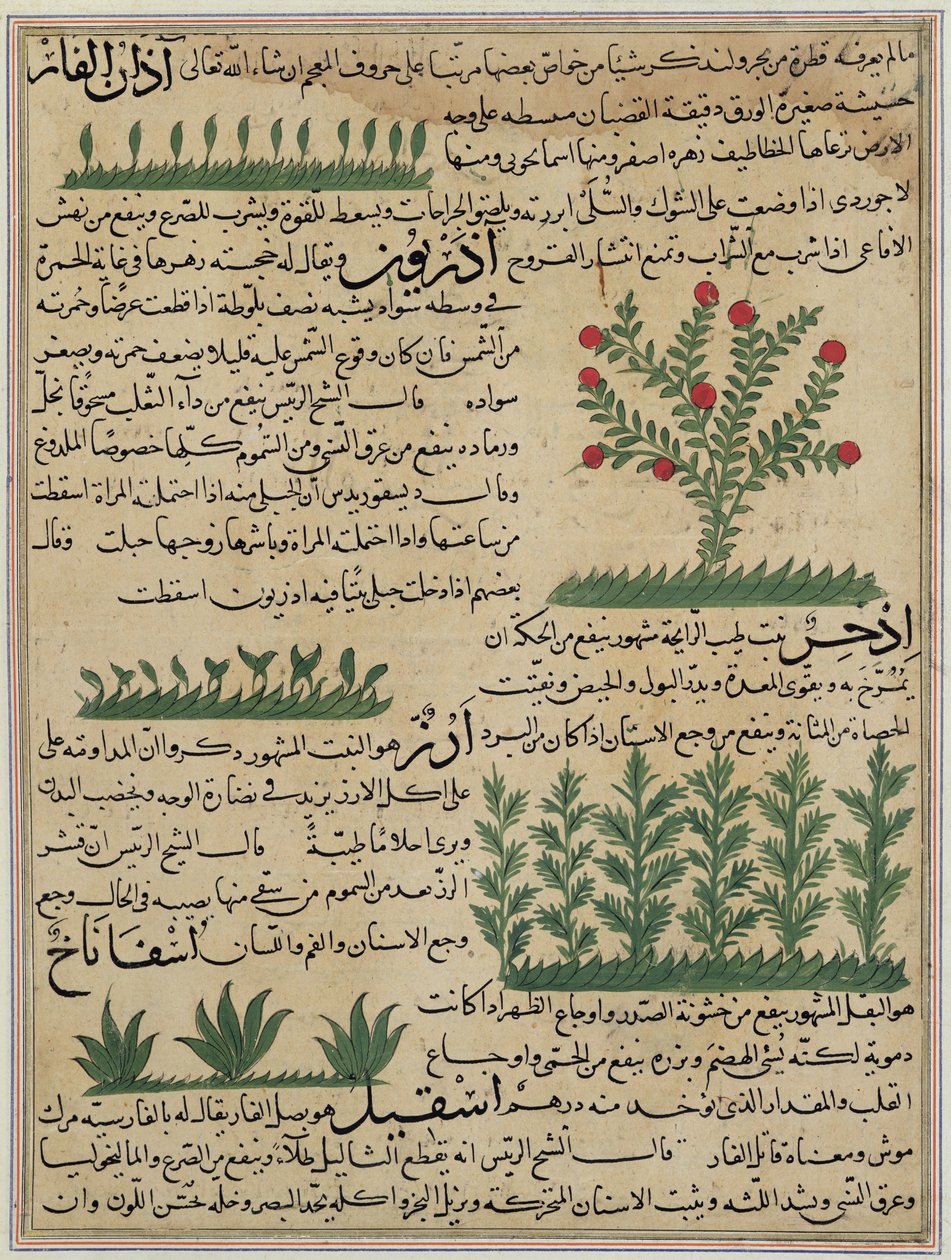 مالم يعرفه قطرة من بحر ولنذكر شيئا من خواص بعضها مرتبا على حروف المعجم ان شاء الله تعالى آذان الفار
حشيشة صغيرة الورق دقيقة القضبان منبسطه على وجه
الارض ترعاها الخطاطيف زهره اصفر ومنها اسمانجونى ومنها
لاجوردى اذا وضعت على الشوك والسلى ابرزته ويلصق الجراحات ويسعط للقوة ويشرب للصرع وينفع من نهش
الافاعى اذا شرب مع الشراب وتمنع انتشار القروح آذريون ويقال له خجسته زهرها فى غاية الحمرة
فى وسطه سواد يشبه نصف بلوطة اذا قطعت عرضا وحمرته
من الشمس فان كان وقوع الشمس عليه قليلا يضعف حمرته ويصغر
سواده قال الشيخ الرئيس ينفع من دآء الثعلب مسحوقا بخل
ورماده ينفع من عرق النسى ومن السموم كلها خصوصا الملدوغ
وقال ديسقوريدس ان الجبلى منه اذا احتملته المراة اسقطت
من ساعتها واذا احتملته المراة وباشرها زوجها حبلت وقال
بعضهم اذا دخلت حبلى بيتا فيه اذريون اسقطت
اذخر نبت طيب الرايحة مشهور ينفع من الحكة ان
يمرخ به ويقوى المعدة ويدر البول والحيض ويفتت
الحصاة من المثانة وينفع من وجع الاسنان اذا كان من البرد
أرز هو النبت المشهور ذكروا ان المداومة على
على اكل الارز يزيد فى نضارة الوجه ويخصب البدن
ويرى احلاما طيبة قال الشيخ الرئيس ان قشر
الرز يعد من السموم من سقى منها يصيبه فى الحال وجع
وجع الاسنان والفم واللسان اسفاناخ
هو البقل المشهور ينفع من خشونة الصدر واوجاع الظهر اذا كانت
دموية لكنه يسئ الهضم وبزره ينفع من الحمى واوجاع
القلب والمقدار الذى يؤخد منه درهم اسقيل هو بصل الفار يقال له بالفارسيه مرك
موش ومعناه قاتل الفار قال الشيخ الرئيس انه يقطع الثاليل طلآء وينفع من الصرع والماليخوليا
وعرق النسى ويشد اللثه ويثبت الاسنان المتحركة ويزيل البخر واكله يحد البصر وخله يحسن اللون وان